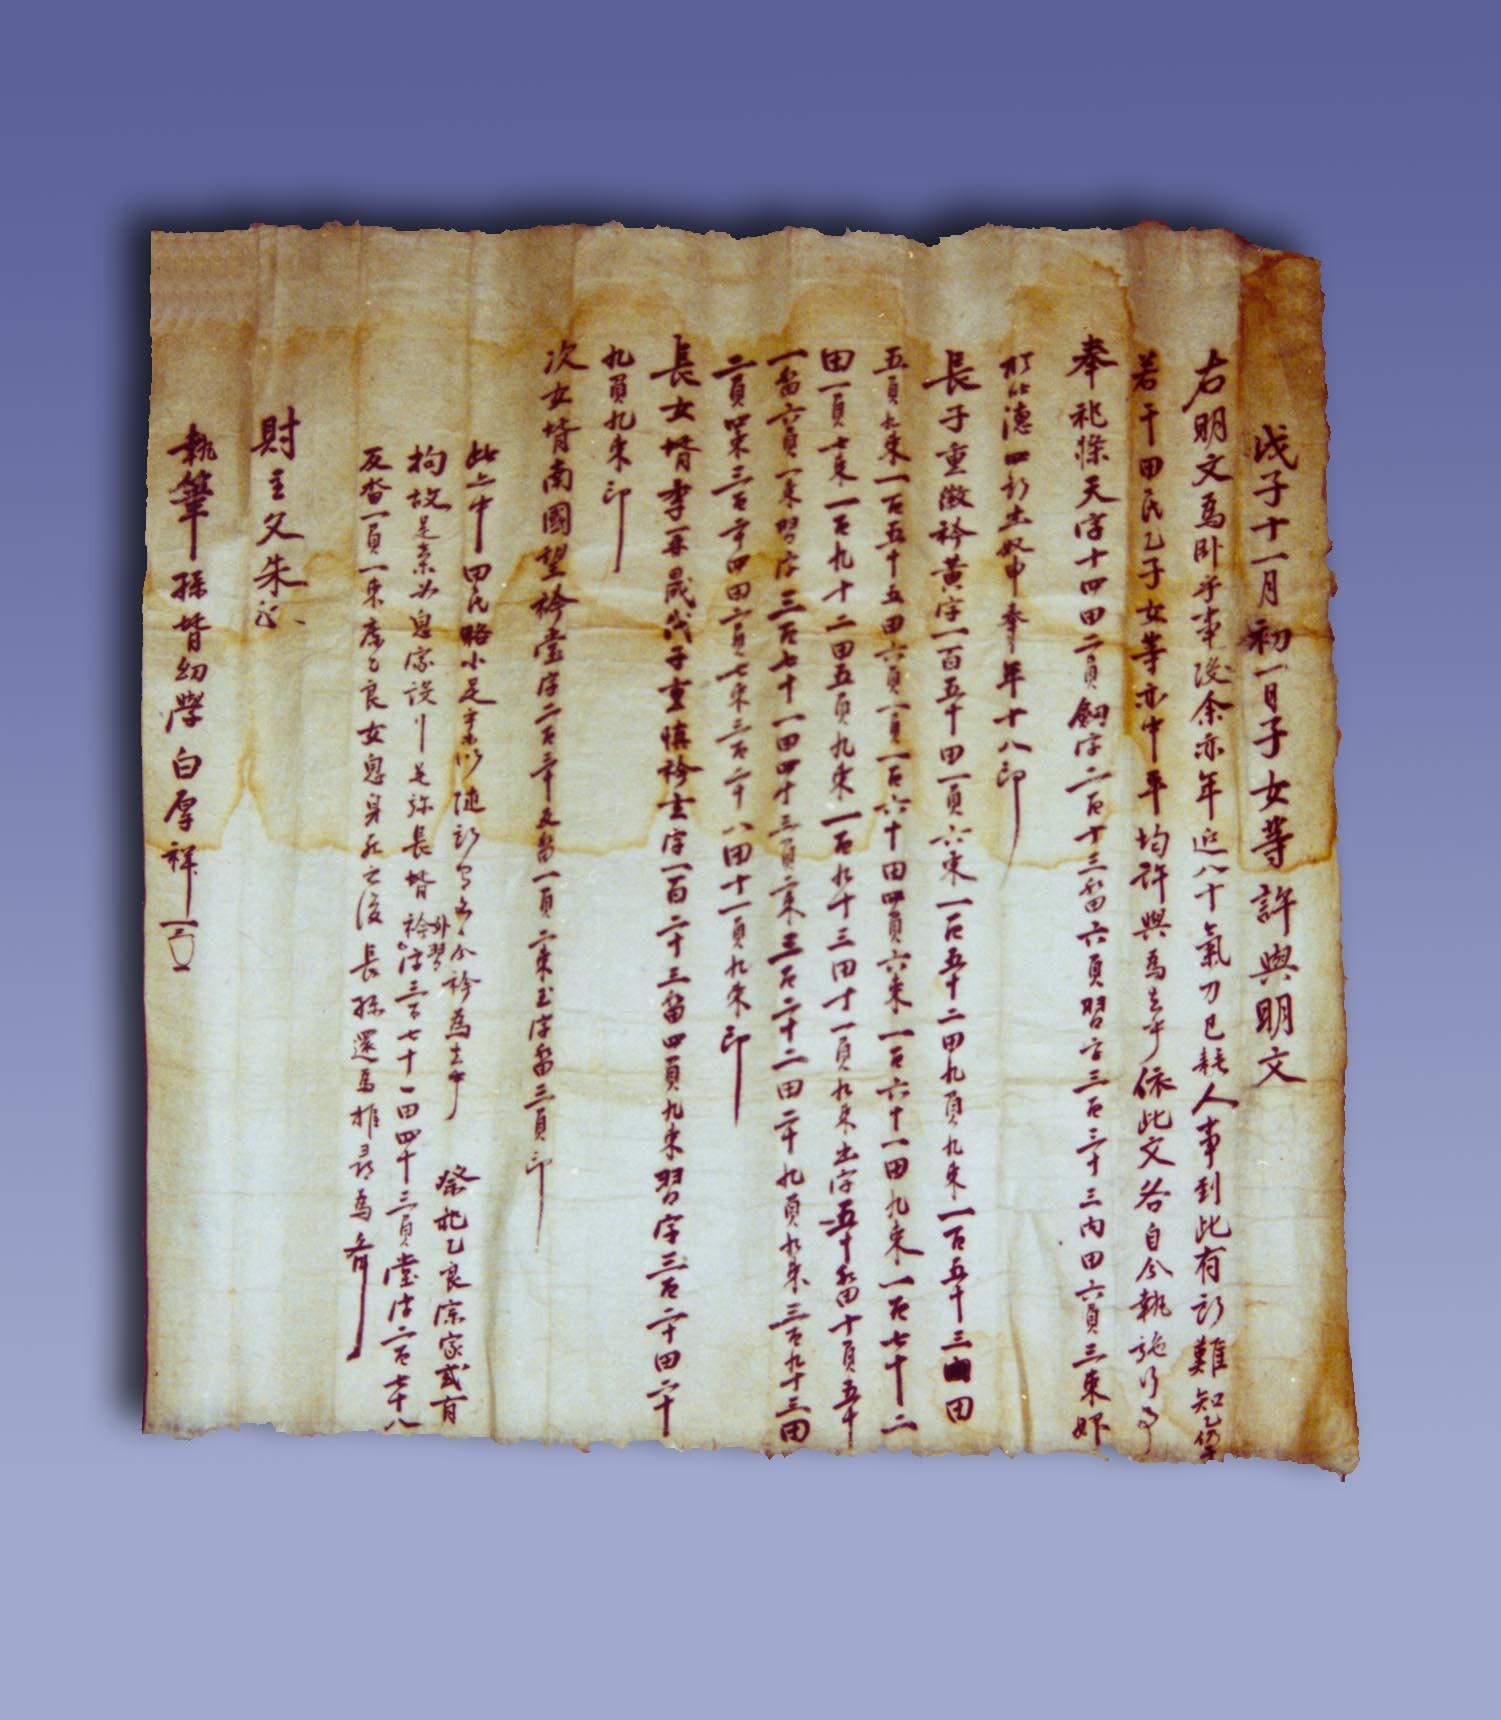 戊子十一月初一日子女等許與明文
右明文爲臥乎事段余亦年迫八十氣力已耗人事到此有所難知乙仍于
若干田民乙子女等亦中平均許與爲去乎依此文各自分執施行事
奉祀條天字十四田二負 字二百十三畓六負習字三百三十三內田六負三束婢
所生 四所生奴申奉年十八印
長子重徵衿黃字一百五十田一負六束一百五十二田九負九束一百五十三田
五負九束一百五十五田六負一負一百六十田四負六束一百六十一田九束一百七十二
田一負七束一百九十二田五負九束一百九十三田十一負九束出字五十畓田十負五十
一畓六負一束習字三百七十一田四十三負二束三百二十二田二十九負九束三百九十三田
二負四束三百二十四田六負七束三百二十八田十一負九束印
長女壻李 晟代子重 衿玄字一百二十三畓四負九束習字三百二十田二十
九負九束印
次女壻南國望衿堂字二百二十五畓一負二束玉字畓三負印
此亦中田民略小是乎所隨所 各分衿爲去乎祭祀乙良宗家或有
拘故是 息家設行是 長壻衿外習字三百七十一田四十三負堂字二百七十八
反畓一負一束庫乙良女息身死之後長孫還爲推尋爲齊
財主父朱
執筆孫壻幼學白厚祥